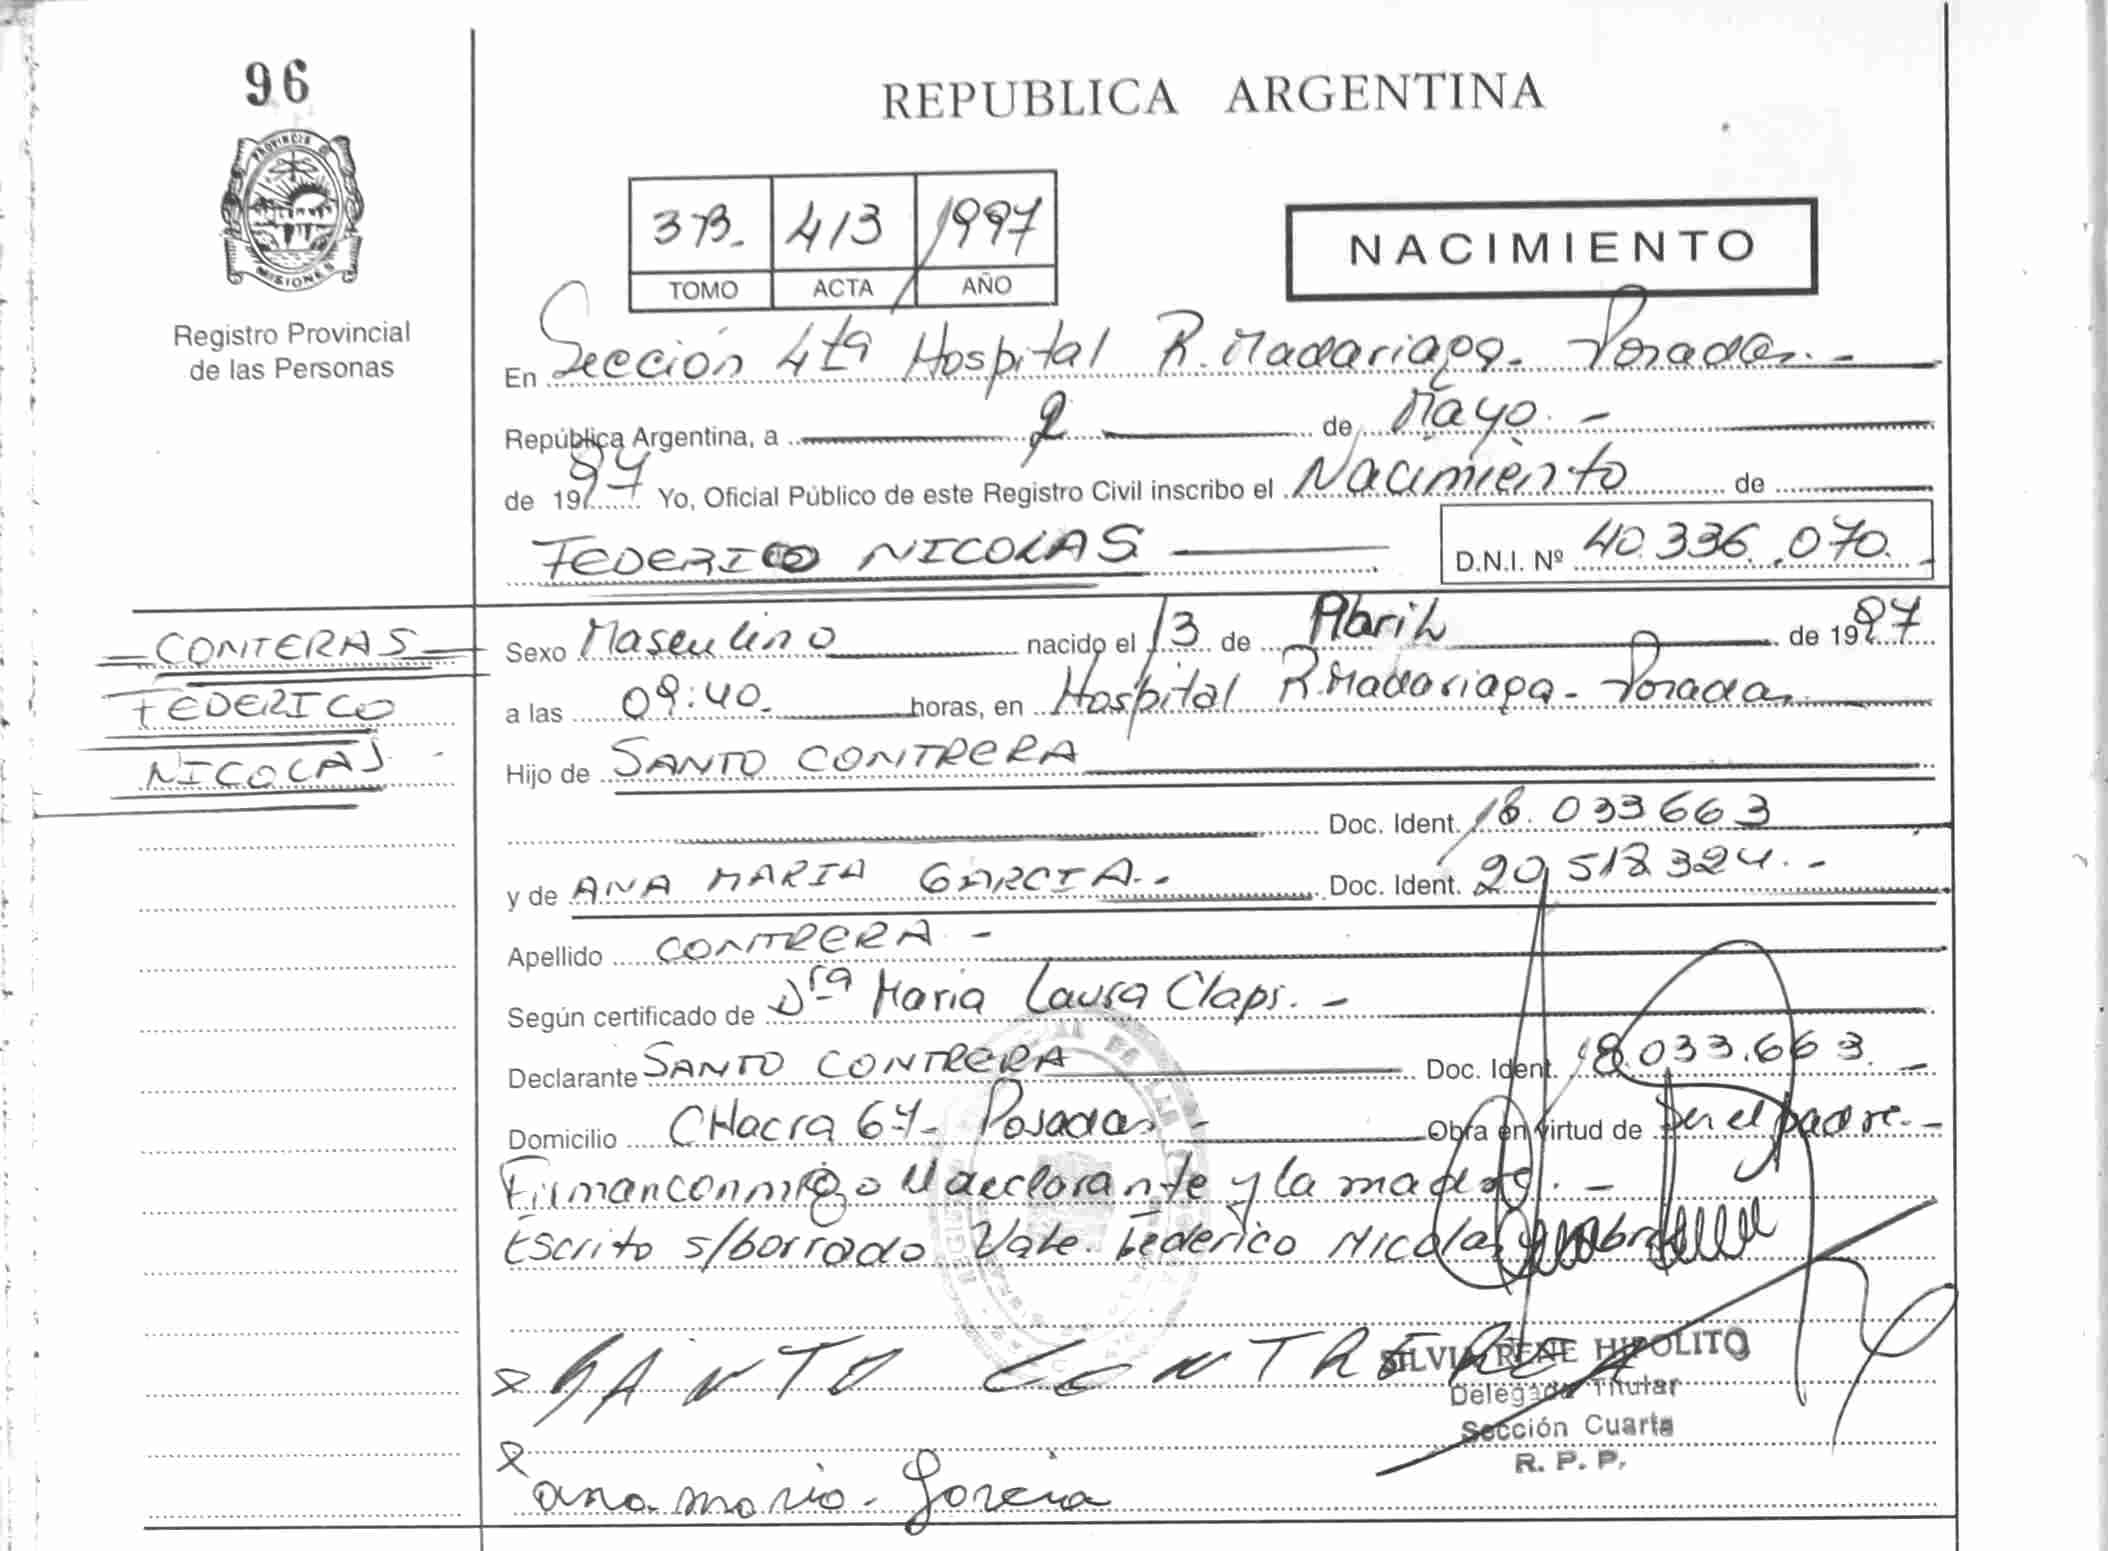 96
PROVINCIA DE
MISIONES
Registro Provincial
de las Personas
REPUBLICA ARGENTINA
3B. 413 1997
TOMO ACTA AÑO
NACIMIENTO
En Sección 4ta Hospital R. Madariaga - Posadas. -
República Argentina, a 2 de Mayo. -
de 1997 Yo, Oficial Público de este Registro Civil inscribo el Nacimiento de
FEDERICO NICOLAS D.N.I. Nº 40.336.070.
CONTERAS
FEDERICO
NICOLAS -
Sexo Masculino nacido el 13 de Abril de 1997
a las 09:40. horas, en Hospital R. Madariaga - Posadas
Hijo de SANTO CONTRERA
Doc. Ident. 18.033663
y de ANA MARIA GARCIA. - Doc. Ident. 20.518324. -
Apellido CONTRERA -
Según certificado de Dra Maria Laura Claps. -
Declarante SANTO CONTRERA Doc. Ident. 18.033.663. -
Domicilio CHacra 67 - Posadas - Obra en virtud de ser el padre. -
Firman conmigo el declarante y la madre. -
Escrito s/borrado Vale. Federico Nicolas
SANTO CONTRERA
SILVIA RENE HIPOLITO
Delegada Titular
Sección Cuarta
R. P. P.
ana maria Garcia